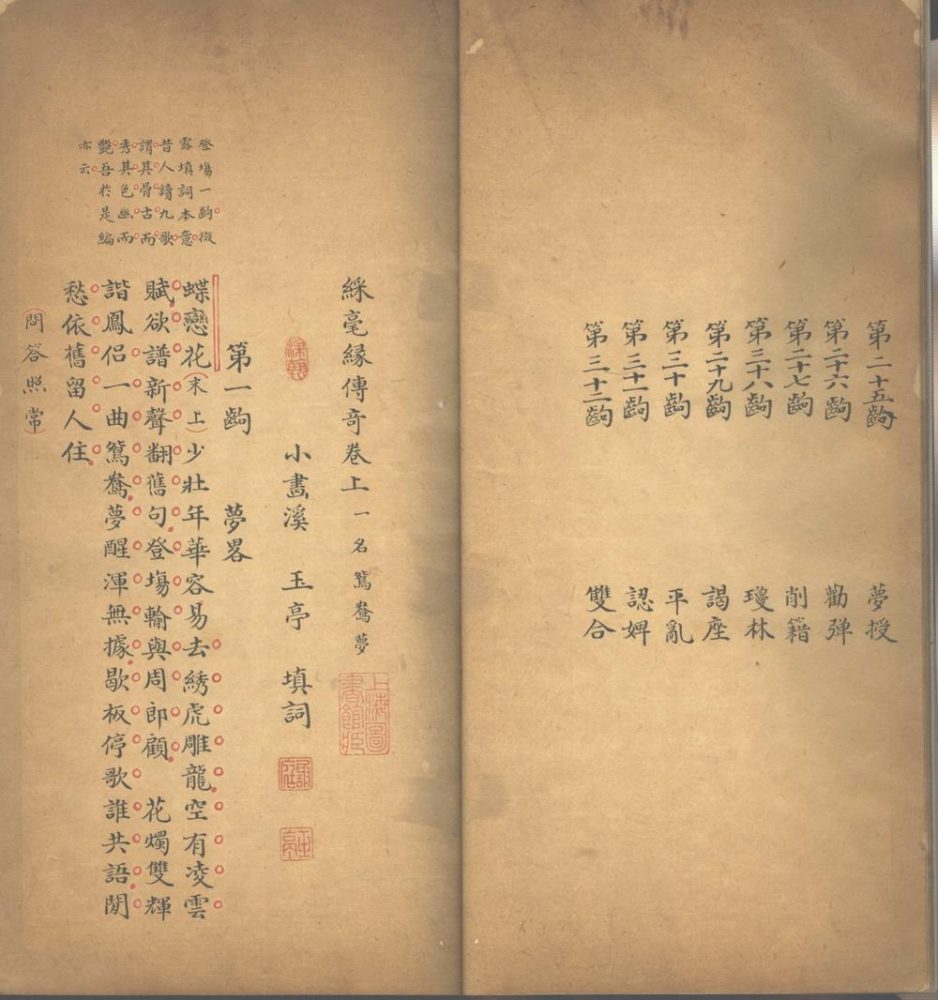 第二十五齣　夢授
第二十六齣　勸弹
第二十七齣　削籍
第二十八齣　瓊林
第二十九齣　謁座
第三十齣　平亂
第三十一齣　認婢
第三十二齣　雙合
綵毫緣傳奇卷上一名鴛鴦夢
上海圖書館藏
小畫溪　玉亭　填詞
第一齣　夢畧
登塲一齣微
露填詞本意
昔人讀九歌
謂其骨古而
秀其色幽而
艷吾於是編
亦云
蝶戀花(末上)少壯年華容易去綉虎雕龍空有凌雲
賦欲譜新聲翻舊句登塲輸與周郎顧　花燭雙輝
諧鳳侣一曲鴛鴦夢醒渾無據歇板停歌誰共語閒
愁依舊留人住
問答照常